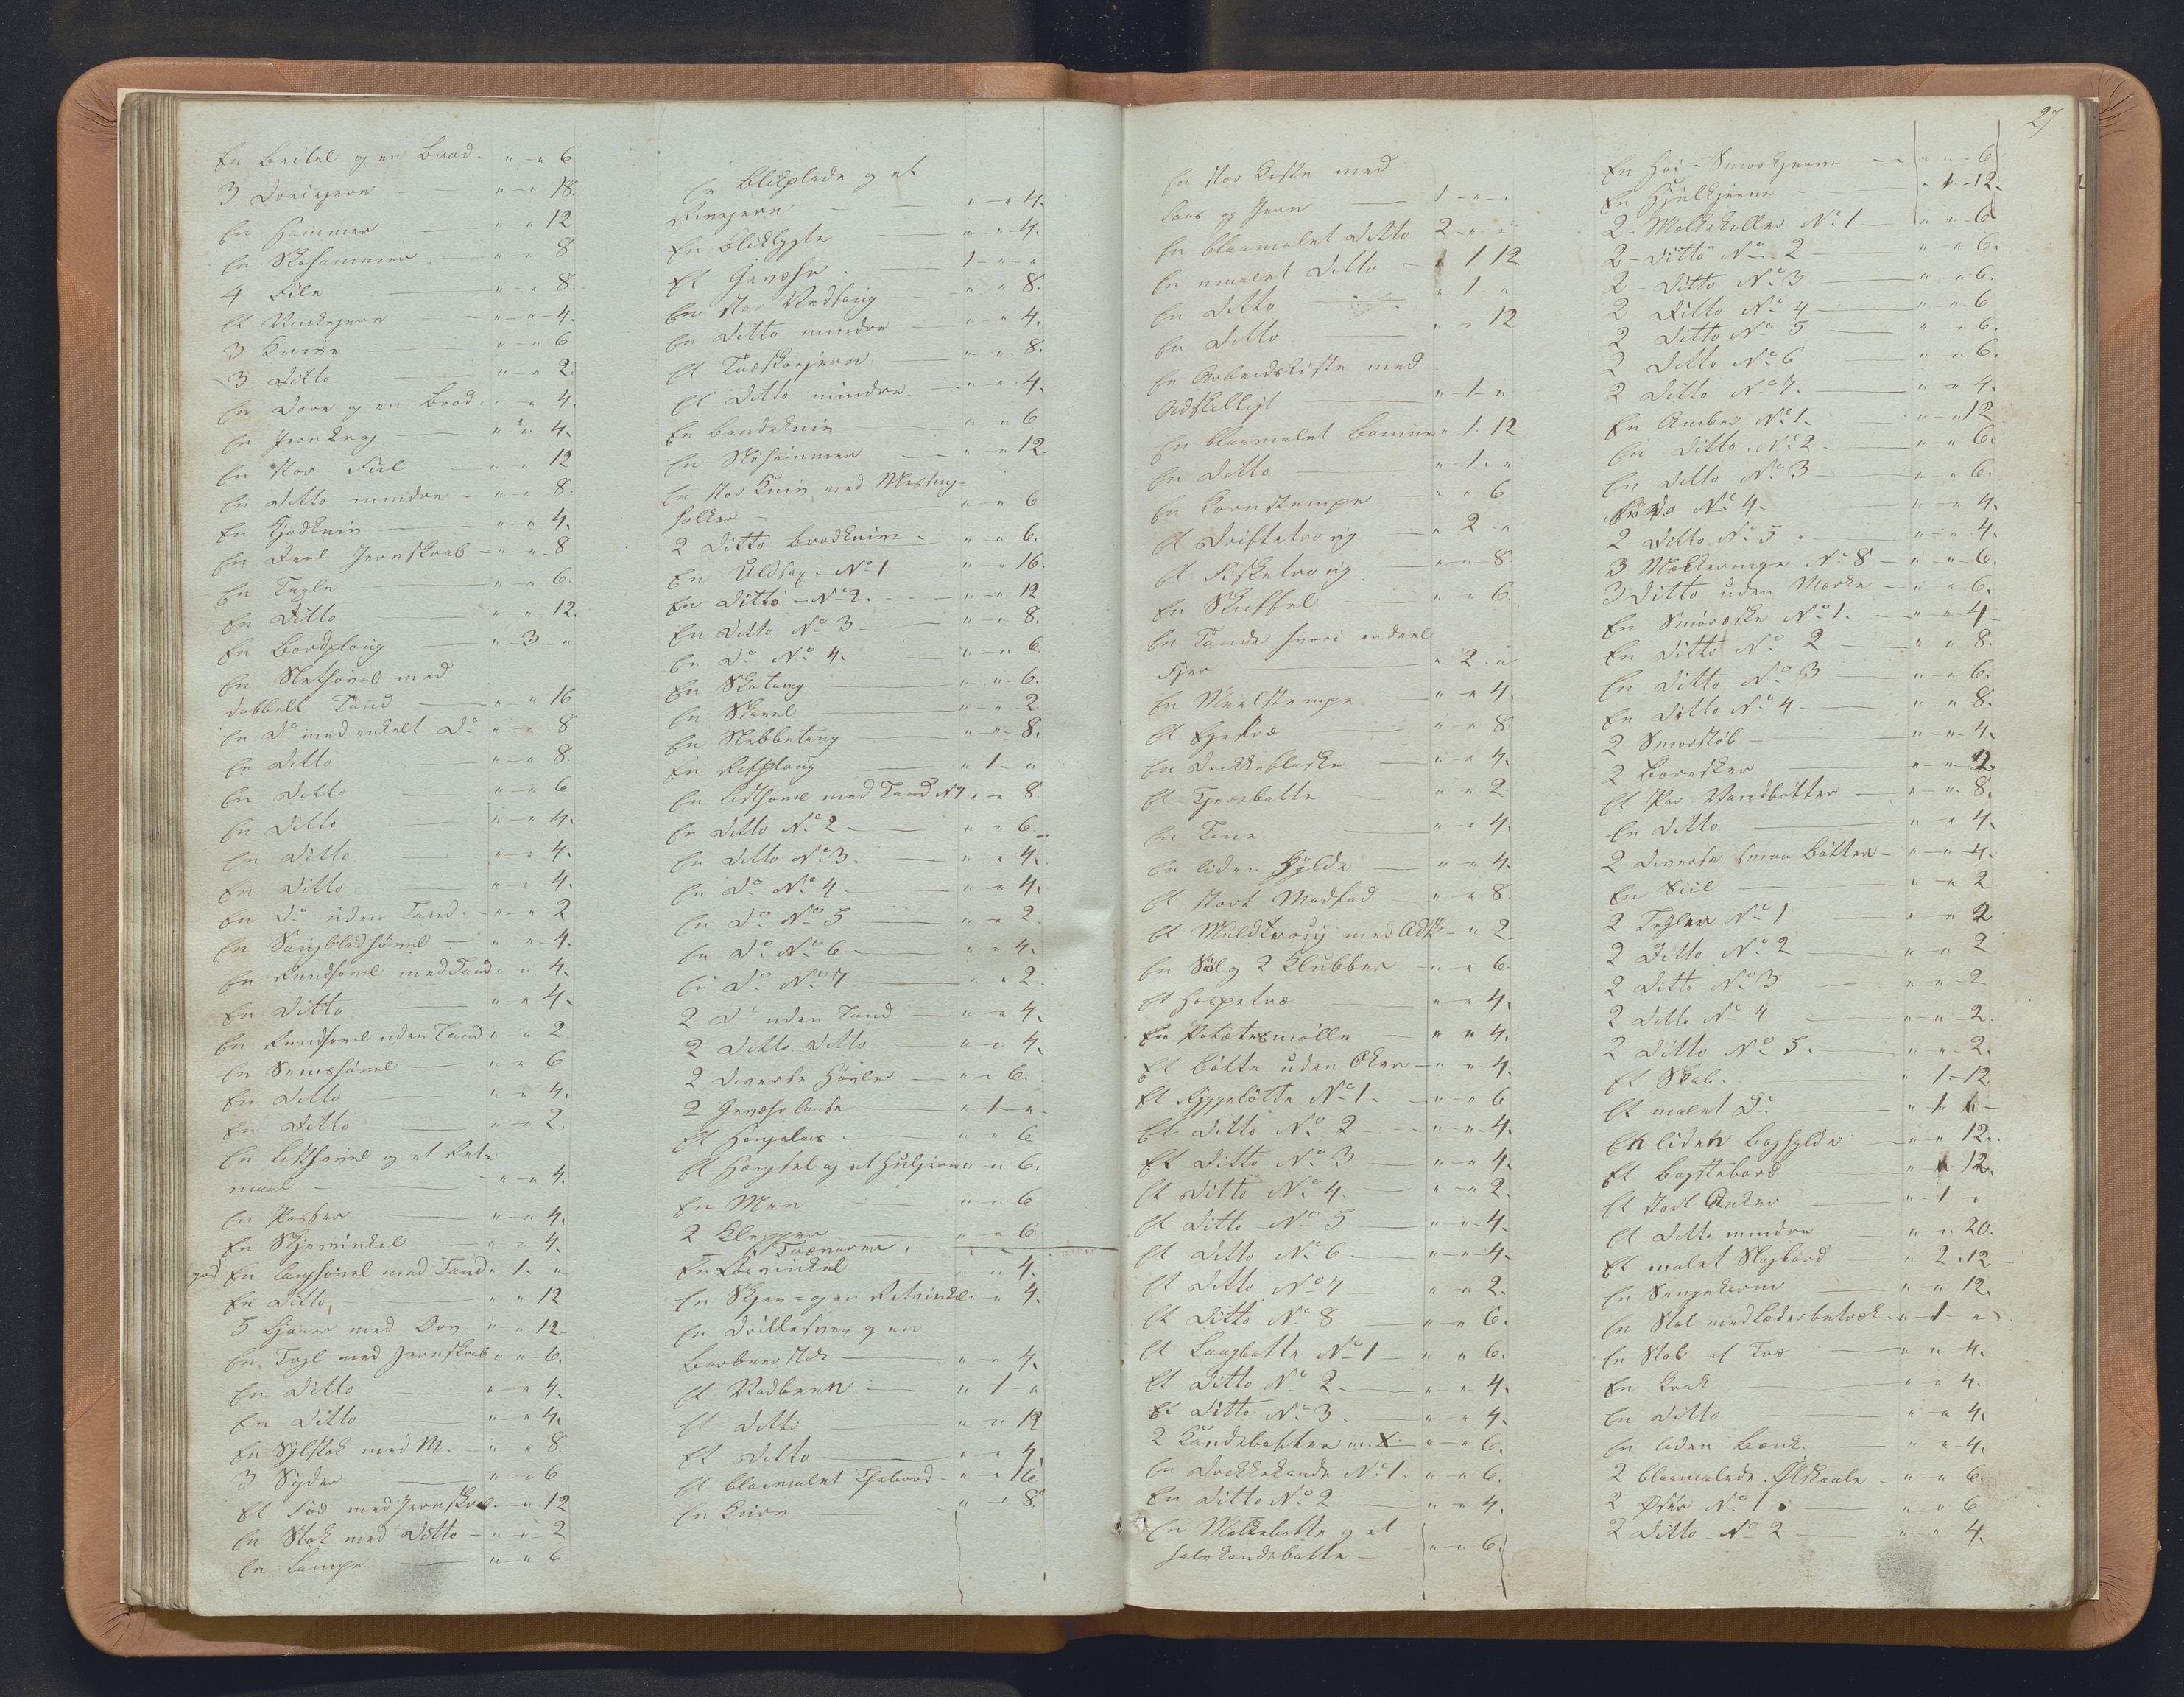 En Beitel og en Brod. " - " 6
3 Doreigern — " - " 18.
En Hammer — " " 12
En Skohammer — " " 8
4 File " - " 8.
Et Vinkejern — " - " 4.
3 Knive — " - " 6
3 Ditto — " - " 2
En Dorn og en Brod. " - " 4.
En Jernkrog — " - " 4.
En stor Fiil — " - " 12
En Ditto mindre — " - " 8.
En Kjødkniv — " " 4.
En Deel Jernskrab — " - " 8
En Tegle — " - " 6.
En Ditto — " - " 12.
En Bordploug — " - 3 - "
En Sletthøvel med
dobbelt Tand — " " 16
En Do med enkelt Do " - " 8
En Ditto — " - " 8.
En Ditto — " " 6
En Ditto — " - " 4.
En Ditto — " - " 4.
En Ditto — " - " 4.
En Do uden Tand. — " - " 2
En Saugbladhøvel — " " 4.
En Rundhøvel med Tand " " 4.
En Ditto — " " 4.
En Rundhøvel uden Tand " - " 2
En Simshøvel — " " 6
En Ditto — " " 4.
En Ditto — " - " 2.
En Listhøvel og et Ret-
maal — " - " 4.
En Passer — " - " 4.
En Skjevvinkel — " - " 4.
En Langhøvel med Tand " 1. "
En Ditto — " " 12
5 Ljaaer med Orv. " - " 12
En Tegl med Jernskrab " - " 6.
En Ditto — " - " 4.
En Ditto — " - " 4.
En Sylstok med M. — " - " 8.
3 Syder — " - " 6
Et Fad med Jernskrab — " 12
En Stok med Ditto — " - " 2
En Lampe — " - " 6
En Blikplade og et
Rivejern — " - " 4.
En Bliklygte — " - " 4.
Et Gevæhr — 1 - " - "
En stor Vedsaug — " " 8.
En Ditto mindre — " " 4.
Et Træskojern — " - " 8.
Et Ditto mindre — " - " 4.
En Bandekniv — " - " 6
En Skohammer — " " 12.
En stor Kniv med Messing-
holker — " " 6
2 Ditto Brodknive — " " 6.
En Uldsax No 1 — " - " 16.
En Ditto — No 2. — " - " 12
En Ditto No 3 — " " 8.
En Do No 4. — " - " 6.
En Skotang — " - " 6.
En Skavel — " - " 2
En Nebbetang — " - " 8.
En Retploug — " 1 - "
En Listhøvel med Tand No 1 " - " 8
En Ditto No 2 — " " 6.
En Ditto No 3. — " " 4.
En Do No 4 — " " 4.
En Do No 5 — " - " 2
En Do No 6 — " " 4.
En Do No 7 — " " 2
2 Do uden Tand — " - " 4.
2 Ditto Ditto — " - " 4.
2 Diverse Høvler — " - " 6.
2 Gevæhrlaase — " 1 - "
Et Hængelaas — " " 6
Et Hængsel og et Huljern " - " 6.
En Men " " 6
2 Klepper — " " 6
En Kosvinkel — " " 4.
En Skjev- og en Retvinkel " 4.
En Drillesveg og en
Barbeerstok — " - " 4.
Et Vadbeen — " 1 - "
Et Ditto — " " 12
Et Ditto — " - " 4
Et blaamalet Thebord — " - " 16
En Kurv — " - " 8.
27
En stor Kiste med
Laas og Jern — 1 - " - "
En blaamalet Ditto 2 - " - "
En umalet Ditto — 1 12
En Ditto — " 1 "
En Ditto — " - " 12
En Arbeidskiste med
Adskelligt — " - 1 - "
En blaamalet Bomme " 1. 12
En Ditto — " - 1. "
En Kornstampe — " " 6
Et Driftetroug — " 2 - "
Et Fisketroug " - " 8
En Skuffel — " " 6
En Tønde hvori endeel
Fjer — " 2 - "
En Meelstampe — " " 4.
Et Egetræ — " " 8
En Drikkeflaske — " " 4.
Et Tjærebøtte — " " 2
En Tine — " " 4.
En liden Hylde — " " 4.
Et stort Madfad — " " 8.
Et Muldtroug med Adsk. — " 2
En Siil og 2 Klubber — " " 6
Et Haspetræ — " " 4.
En Potætesmølle — " " 4.
Et Bøtte uden Ører — " " 4.
Et Ryggebøtte No 1. — " " 6
Et Ditto No 2 — " - " 4.
Et Ditto No 3 — " " 4.
Et Ditto No 4. — " " 2.
Et Ditto No 5 — " " 4.
Et Ditto No 6 — " - " 4.
Et Ditto No 7 — " " 2.
Et Ditto No 8 — " " 6.
Et Laagbøtte No 1 — " " 6.
Et Ditto No 2 — " " 4.
Et Ditto No 3 — " - " 4.
2 Kandebøtter m. X — " " 6.
En Drikkekande No 1. " " 6.
En Ditto No 2 — " " 4.
En Melkebøtte og et
halvkandebøtte — " " 6.
En Høi-Smørkjerne — " " 6
En Hjulkjerne — " 1 - 12.
2 - Melkekoller No 1 — " " 6
2 - Ditto No 2 — " " 6.
2 - Ditto No 3 — " " 6.
2 Ditto No 4 — " " 6
2 Ditto No 5 — " " 6.
2 Ditto No 6 — " " 6.
2 Ditto No 7. — " " 4.
En Ambar No 1. — " " 12
En Ditto. No 2 — " " 6.
En Ditto No 3 — " " 6.
En Do No 4. — " " 4.
2 Ditto No 5 — " - " 4.
3 Melkeringe No 8 — " - " 6.
3 Ditto uden Mærke — " " 6.
En Smøræske No 1. — " " 4
En Ditto No 2 — " " 8.
En Ditto No 3 — " " 6.
En Ditto No 4 — " " 8.
2 Smørstøb — " - " 4.
2 Børesker — " - " 2.
Et Par Vandbøtter — " " 8.
En Ditto — " " 4.
2 Diverse smaa Bøtter — " - " 4.
En Siil — " " 2
2 Tegler No 1 — " " 2
2 Ditto No 2 — " " 2
2 Ditto No 3 — " " 2
2 Ditto No 4 — " " 2.
2 Ditto No 5. — " " 2.
Et Skab. — " 1 - 12.
Et malet Do — " 1 -
En liden Boghylde — " " 12.
Et Bagstebord " " 12.
Et stort Anker — " 1 "
Et Ditto mindre — " " 20.
Et malet Slagbord " 2. 12.
En Sengekarm — " " 12.
En Stol med Læderbetræk " 1 - "
En Stol af Træ — " " 4.
En Krak — " " 4.
En Ditto — " " 4.
En liden Bænk. — " " 4.
2 blaamalede Ølskaale — " " 6.
2 Øser No 1 — " " 6
2 Ditto No 2 — " " 4.